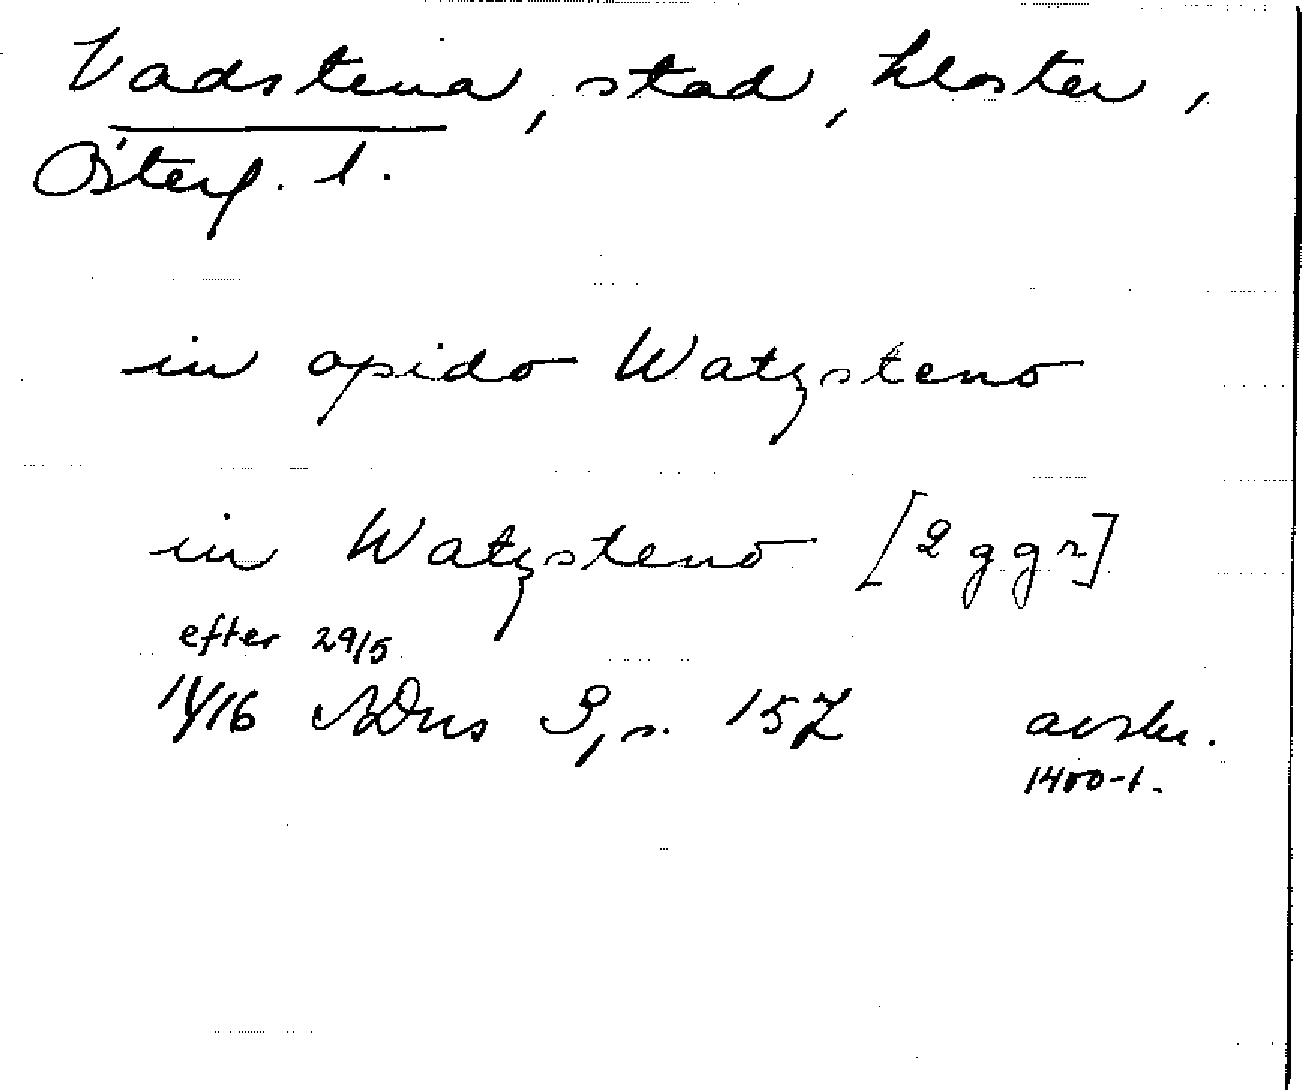 Vadstena, stad, kloster,
Österg. l.
in opido Watzsteno
in Watzsteno [2 ggr]
efter 29/5
1416 SDns 3, s. 157 avskr.
1400-t.